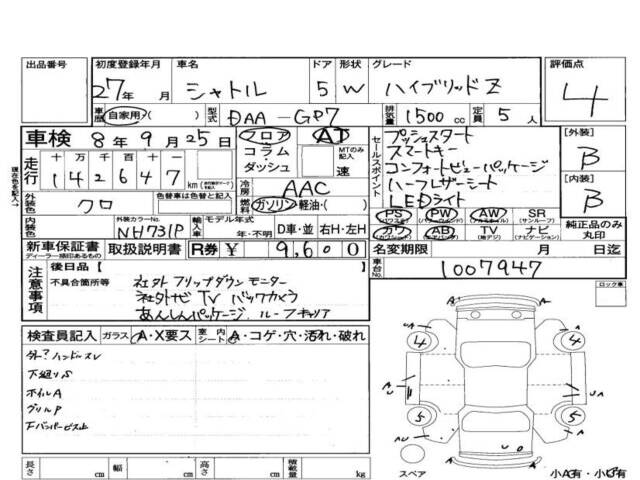 出品番号 初度登録年月 車名 ドア 形状 グレード 評価点
27年 月 シャトル 5 W ハイブリッドZ 4
車歴 自家用・( ) 型式 DAA-GP7 排気量 1500cc 定員 5人
車検 8年9月25日 フロア AT セールスポイント プッシュスタート [外装] B
走行 十万千百十一 コラム・ダッシュ MTのみ記入 速 スマートキー
142647 km コンフォートビューパッケージ [内装] B
現在色を記入。 冷房 AAC ハーフレザーシート
外装色 クロ 色替車は元色記入 燃料 ガソリン・軽油・( ) LEDライト
内装色 外装カラーNo. NH731P 輸入車 モデル年式 年・不明 D車・並 右H・左H
PS PW AW SR(サンルーフ) 純正品のみ丸印
カワ AB TV(地デジ) ナビ(ナビゲーション)
新車保証書 取扱説明書 R券 ¥9,600 名変期限 月 日迄
ディーラー捺印あるもの
車台No. 1007947
注意事項 後日品[ ] ロック車
不具合箇所等 社外フリップダウンモニター
社外ナビTV バックカメラ
あんしんパッケージ、ルーフキャリア
検査員記入 ガラス A・X要ス 室内シート A・コゲ・穴・汚れ・破れ
下廻りS
ホイルA
グリルP
4 4
5 5
長さ cm 幅 cm 高さ cm 積載量 kg
スペア 小A有・小E有